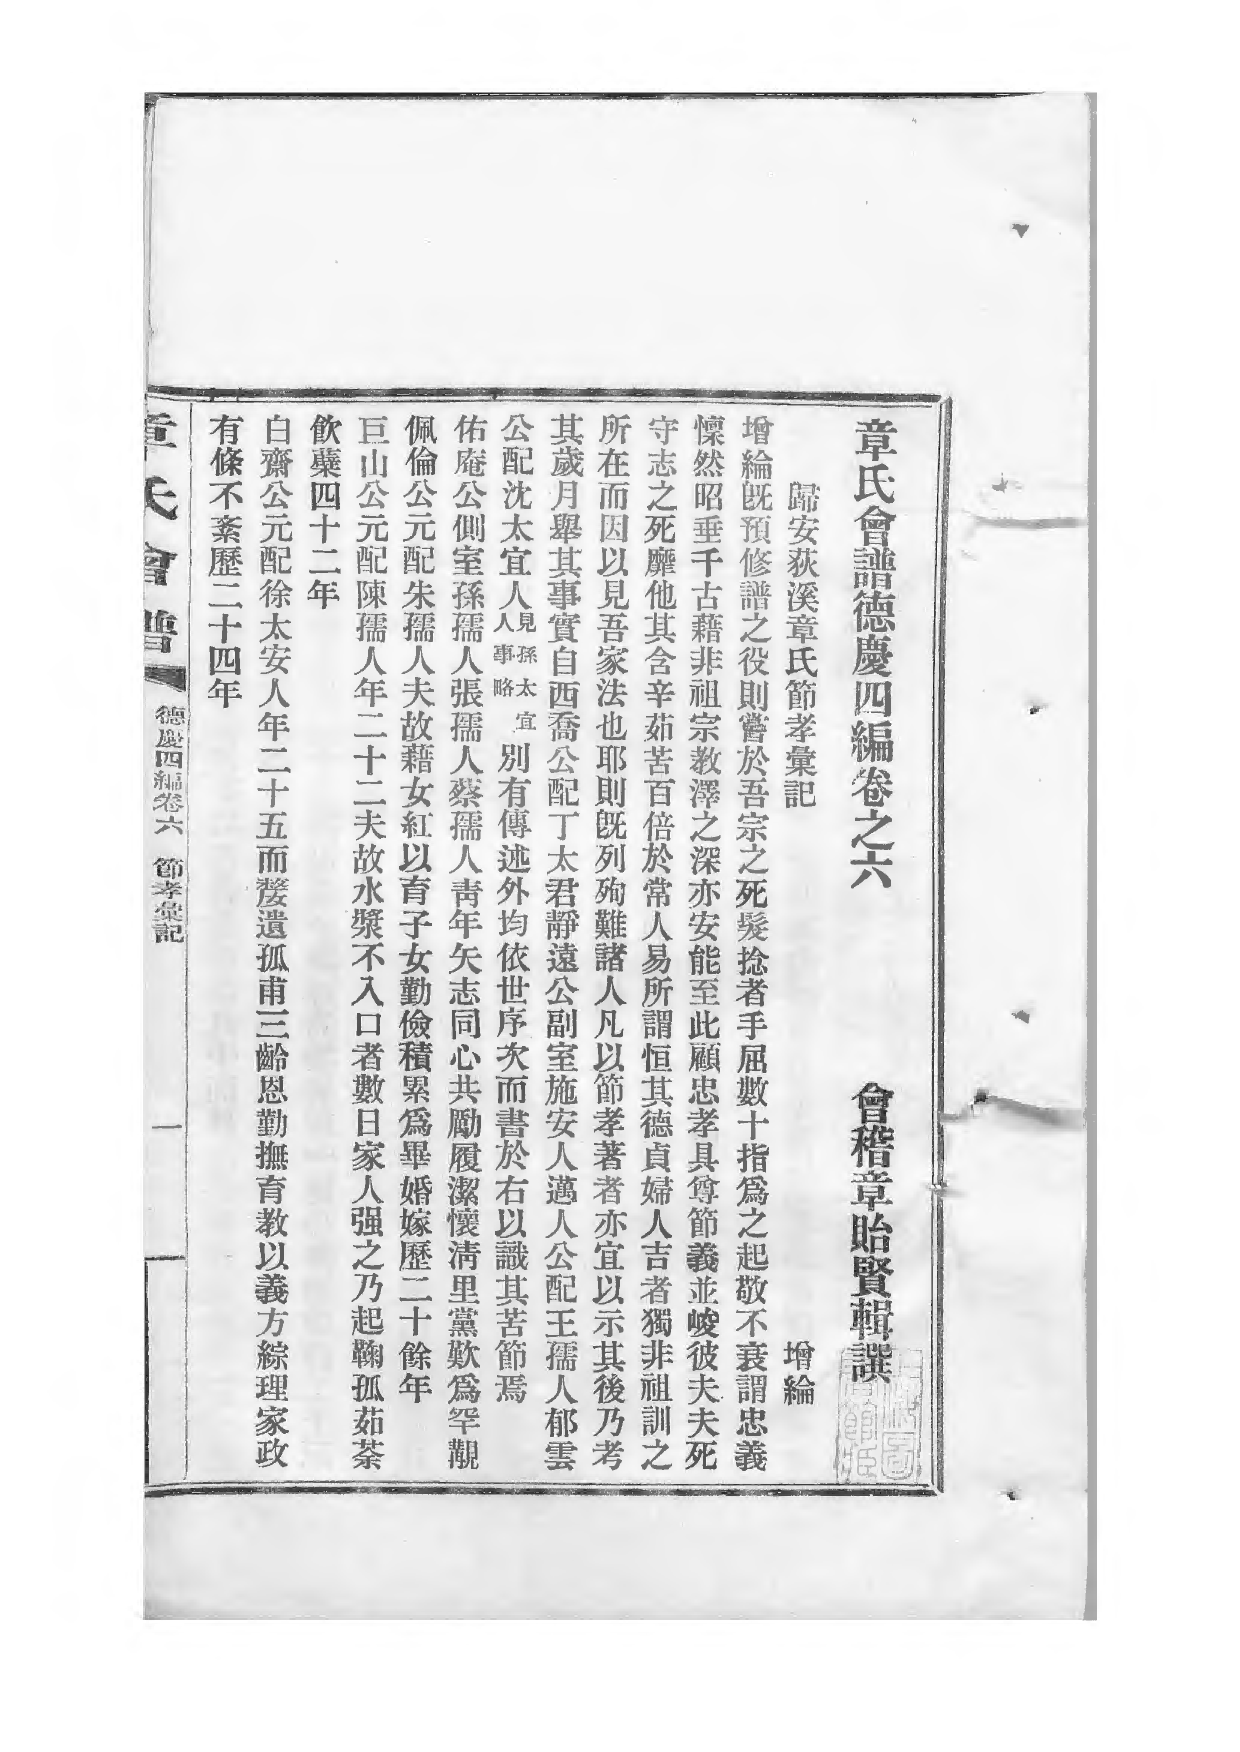 章氏會譜德慶四編卷之六　會稽章貽賢輯譔
歸安荻溪章氏節孝彙記　增綸
增綸旣預修譜之役則嘗於吾宗之死髮捻者手屈數十指爲之起敬不衰謂忠義
懍然昭垂千古藉非祖宗教澤之深亦安能至此顧忠孝具尊節義並峻彼夫夫死
守志之死靡他其含辛茹苦百倍於常人易所謂恒其德貞婦人吉者獨非祖訓之
所在而因以見吾家法也耶則旣列殉難諸人凡以節孝著者亦宜以示其後乃考
其歲月舉其事實自西喬公配丁太君靜遠公副室施安人邁人公配王孺人郁雲
公配沈太宜人見孫太宜人事略別有傳述外均依世序次而書於右以識其苦節焉
佑庵公側室孫孺人張孺人蔡孺人靑年矢志同心共勵履潔懷淸里黨歎爲罕覯
佩倫公元配朱孺人夫故藉女紅以育子女勤儉積累爲畢婚嫁歷二十餘年
巨山公元配陳孺人年二十二夫故水漿不入口者數日家人强之乃起鞠孤茹荼
飮蘗四十二年
白齋公元配徐太安人年二十五而嫠遺孤甫三齡恩勤撫育教以義方綜理家政
有條不紊歷二十四年
章氏會譜　德慶四編卷六　節孝彙記　一